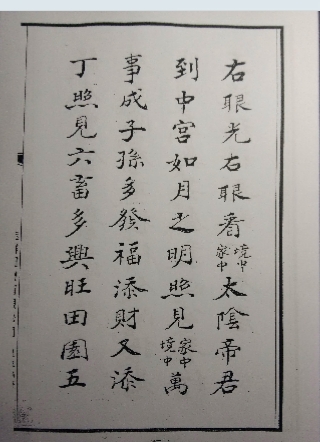 右眼光右眼看境中家中太陰帝君
到中宮如月之明照見家中境中萬
事成子孫多發福添財又添
丁照見六畜多興旺田園五